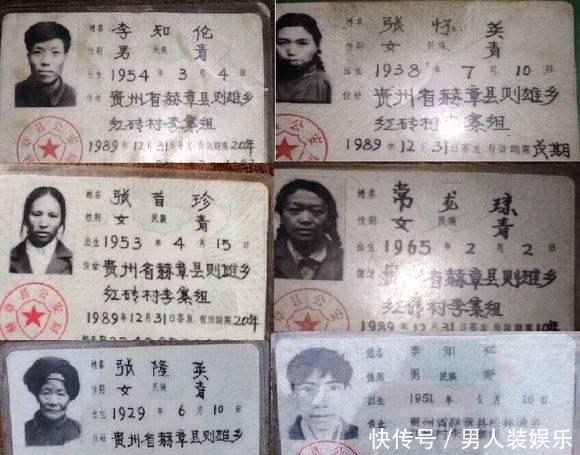 姓名 李知伦
性别 男 民族 青
出生 1954年3月4日
住址 贵州省赫章县则雄乡
红砖村李寨组
1989年12月31日签发 有效期限20年
赫章县公安局
姓名 张怀英
性别 女 民族 青
出生 1938年7月10日
住址 贵州省赫章县则雄乡
红砖村李寨组
1989年12月31日签发 有效期限 长期
姓名 张首珍
性别 女 民族 青
出生 1953年4月15日
住址 贵州省赫章县则雄乡
红砖村李寨组
1989年12月31日签发 有效期限20年
赫章县公安局
姓名 常龙琼
性别 女 民族 青
出生 1965年2月2日
住址 贵州省赫章县则雄乡
红砖村李寨组
1989年12月31日签发 有效期限10年
赫章县公安局
姓名 张隆英
性别 女 民族 青
出生 1929年6月10日
住址 贵州省赫章县则雄乡
姓名 李知
性别 男 民族 青
出生 1951年4月16日
住址 贵州省赫章县
快传号 / 男人装娱乐